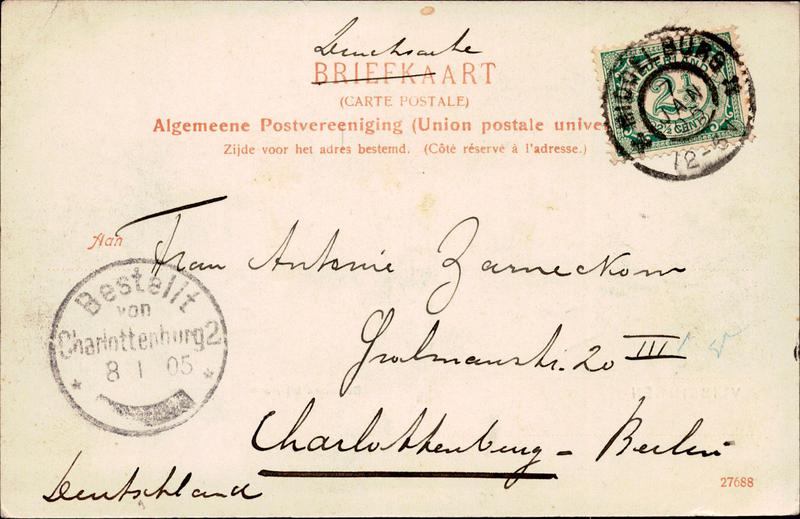 Drucksache
BRIEFKAART
(CARTE POSTALE)
Algemeene Postvereeniging (Union postale univer
Zijde voor het adres bestemd. (Côté réservé à l'adresse.)
MIDDELBURG
NEDERLAND
2½
JAN
2½ CENT
12-
Aan
Frau Antonie Zarneckow
Grolmanstr. 20 III
Charlottenburg - Berlin
Deutschland
Bestellt
von
Charlottenburg 2.
8 1 05
27688